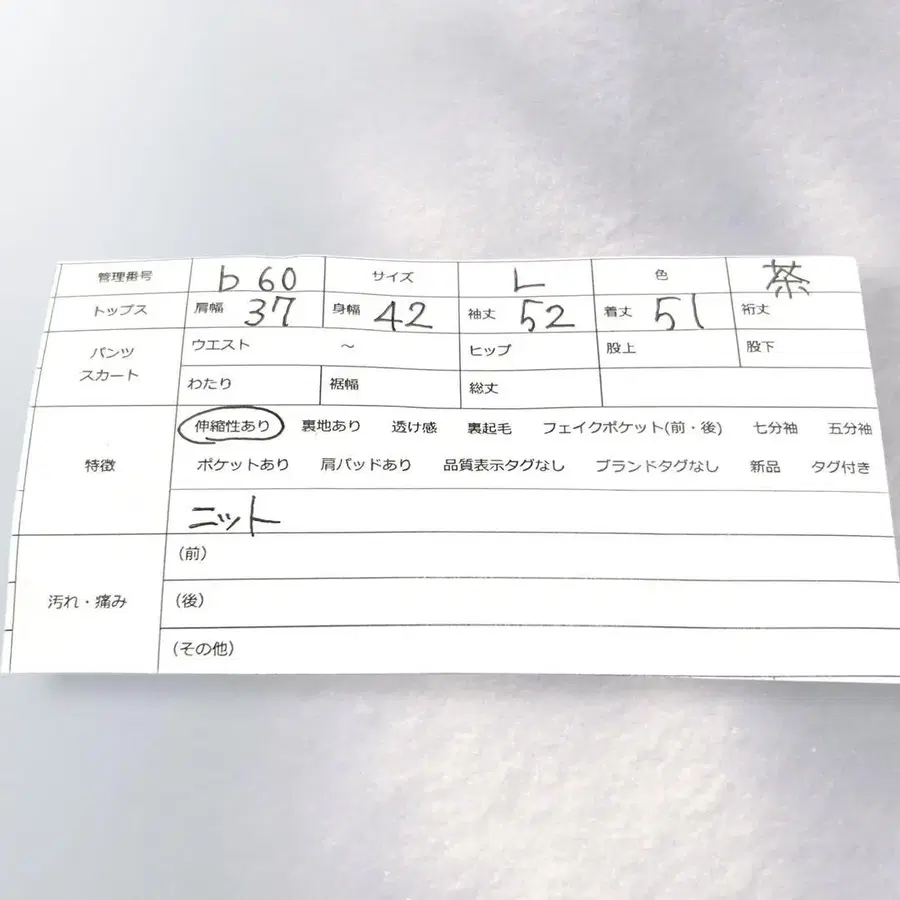 管理番号 b 60 サイズ L 色 茶
トップス 肩幅 37 身幅 42 袖丈 52 着丈 51 裄丈
パンツ スカート ウエスト ～ ヒップ 股上 股下
わたり 裾幅 総丈
特徴 伸縮性あり 裏地あり 透け感 裏起毛 フェイクポケット(前・後) 七分袖 五分袖
ポケットあり 肩パッドあり 品質表示タグなし ブランドタグなし 新品 タグ付き
ニット
汚れ・痛み (前)
(後)
(その他)